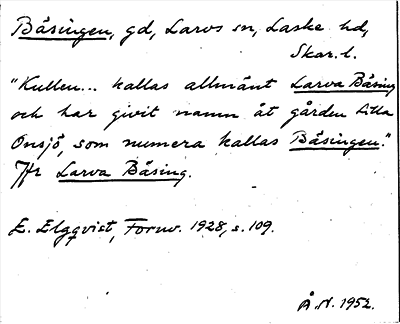 Båsingen, gd, Larvs sn, Laske hd,
Skar. l.
"Kullen... kallas allmänt Larva Båsing
och har givit namn åt gården Lilla
Onsjö, som numera kallas Båsingen."
Jfr Larva Båsing.
E. Elgqvist, Fornv. 1928, s. 109.
Å.N. 1952.